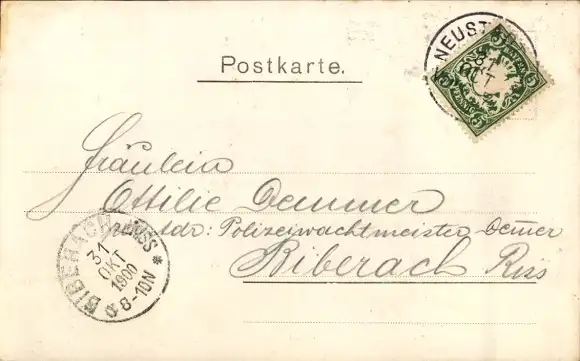 Postkarte.
NEUST
OKT
BAYERN
5 PFENNIG 5
Fräulein
Ottilie Demmer
Adr: Polizeiwachtmeister Dem̅er
Biberach Riss
BIBERACH RISS
31
OKT
1900
8-10N